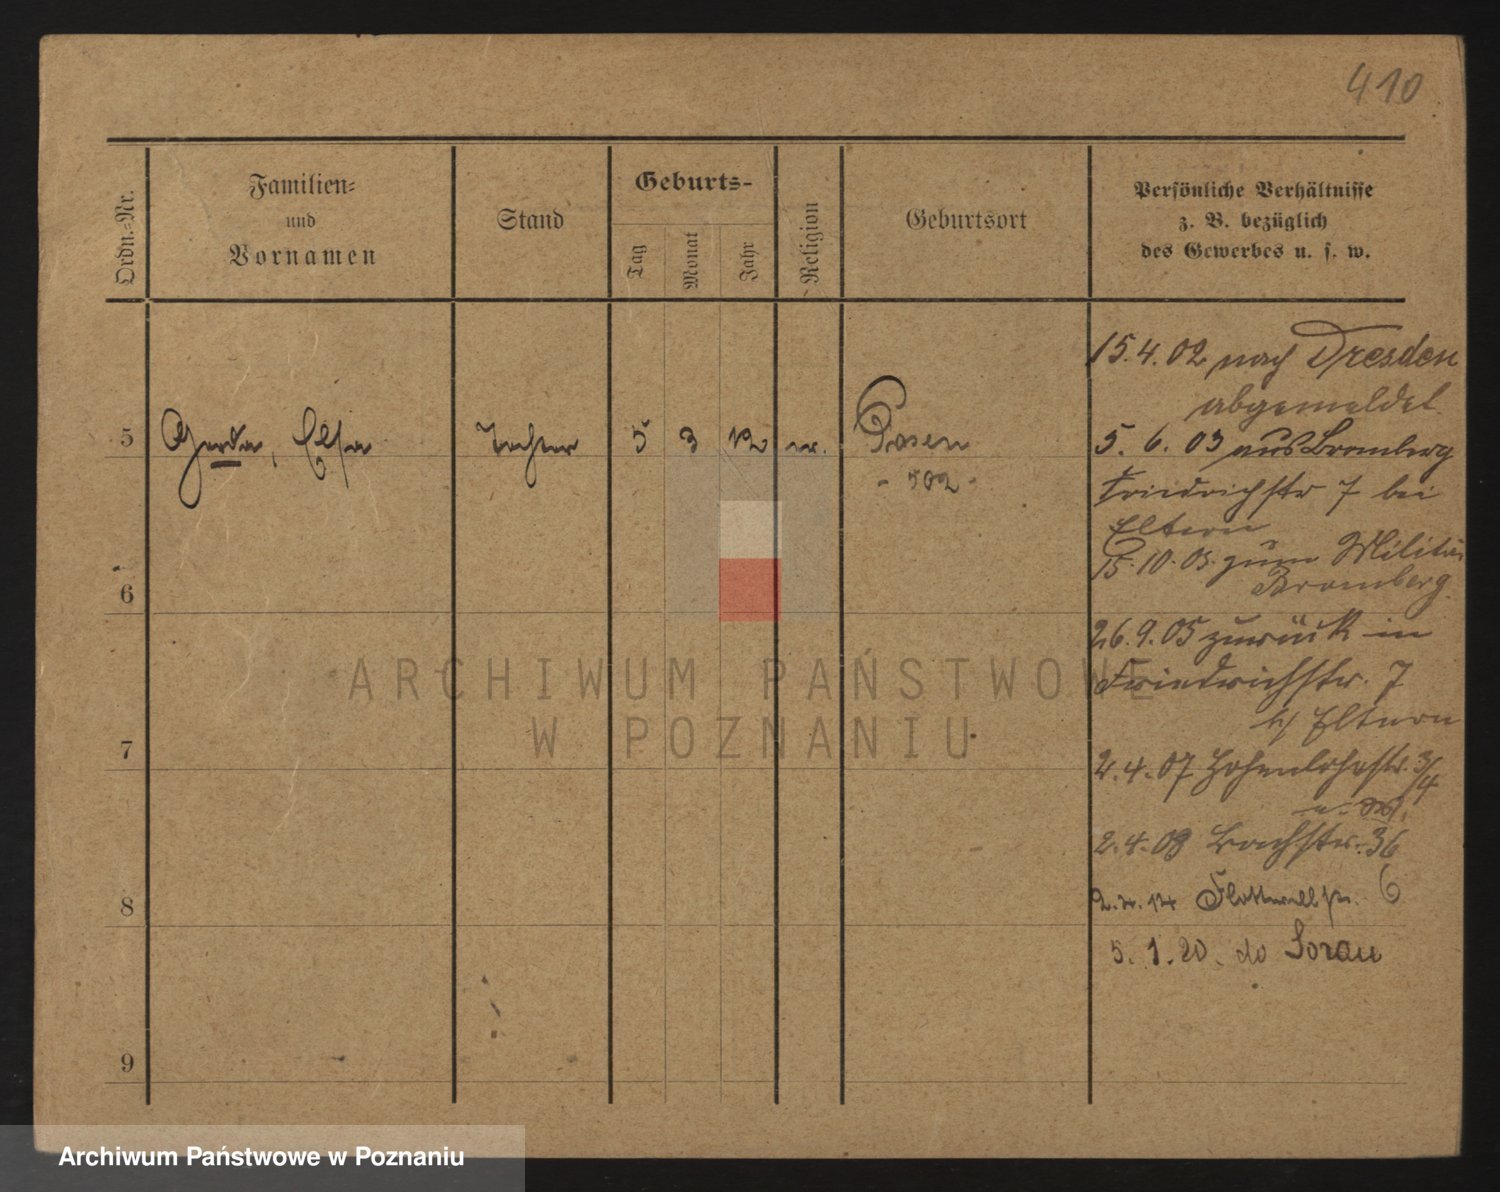 410
Ordn.-Nr.
Familien-
und
Vornamen
Stand
Geburts-
Tag
Monat
Jahr
Religion
Geburtsort
Persönliche Verhältnisse
z. B. bezüglich
des Gewerbes u. s. w.
15.4.02 nach Dresden
abgemeldet
5 Gerda, Elsa Tochter 5 3 12 ev. Posen
- 502 -
5. 6. 03 aus Bromberg
Friedrichstr 7 bei
Eltern
15.10.03 zum Militär
Bromberg.
26.9.05 zurück in
Friedrichstr. 7
b/ Eltern
2.4.07 Hohenlohestr. 3/4
2.4.08 Bachstr. 36
2.4.14 Flottwellstr. 6
5.1.20. do Sorau
6
7
8
9
ARCHIWUM PAŃSTWOWE
W POZNANIU
Archiwum Państwowe w Poznaniu